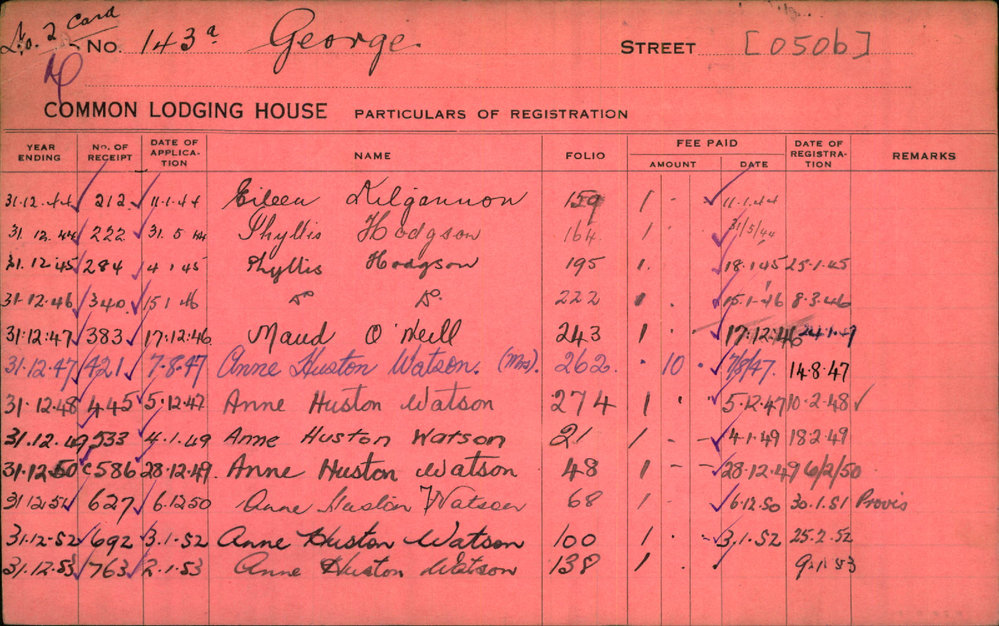 No. 2 Card
No. 143a George STREET [0506]
COMMON LODGING HOUSE PARTICULARS OF REGISTRATION
YEAR ENDING NO. OF RECEIPT DATE OF APPLICATION NAME FOLIO FEE PAID AMOUNT DATE DATE OF REGISTRATION REMARKS
31.12.44 212 11.1.44 Eileen Kilgannon 159 1 - 11.1.44
31.12.44 222 31.5.44 Phyllis Hodgson 164 1 - 31/5/44
31.12.45 284 4.1.45 Phyllis Hodgson 195 1. 18.1.45 25.1.45
31.12.46 340 15.1.46 Do Do. 222 1 . 15.1.46 8.3.46
31.12.47 383 17.12.46 Maud O'Neill 243 1 . 17.12.46 24.1.47
31.12.47 421 7.8.47 Anne Huston Watson. (Mrs). 262 . 10 . 7/8/47 14.8.47
31.12.48 445 5.12.47 Anne Huston Watson 274 1 . 5.12.47 10.2.48 ✓
31.12.49 533 4.1.49 Anne Huston Watson 21 1 - - 4.1.49 18.2.49
31.12.50 586 28.12.49 Anne Huston Watson 48 1 - - 28.12.49 6/2/50
31.12.51 627 6.12.50 Anne Huston Watson 68 1 - 6.12.50 30.1.51 Provis
31.12.52 692 3.1.52 Anne Huston Watson 100 1 . - 3.1.52 25.2.52
31.12.53 763 2.1.53 Anne Huston Watson 138 1 . . 9.1.53